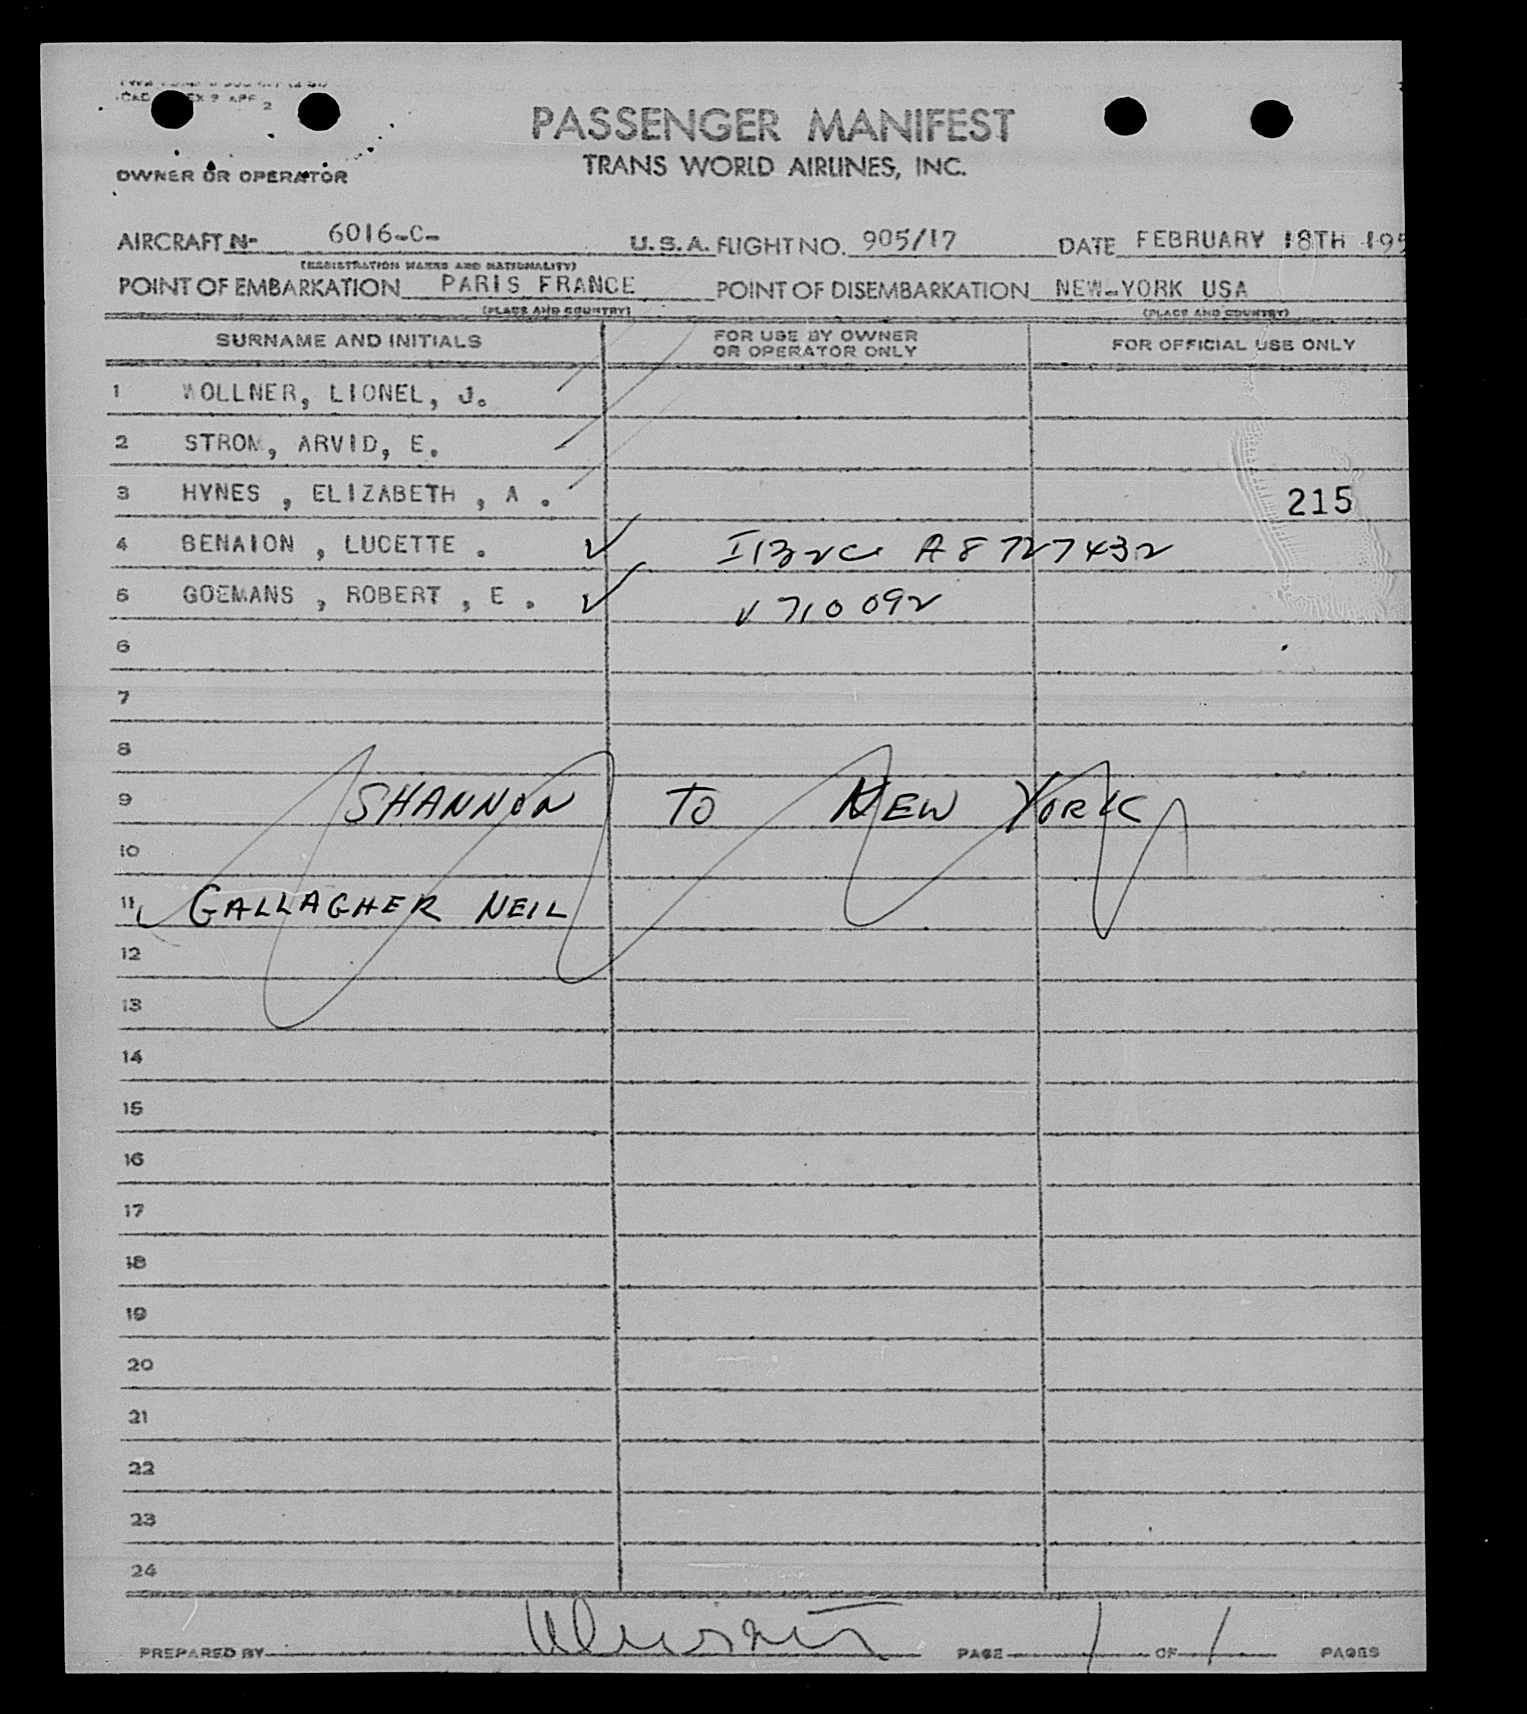 PASSENGER MANIFEST
TRANS WORLD AIRLINES, INC.
OWNER OR OPERATOR
AIRCRAFT N- 6016-C- U.S.A. FLIGHT NO. 905/17 DATE FEBRUARY 18TH 195
(REGISTRATION MARKS AND NATIONALITY)
POINT OF EMBARKATION PARIS FRANCE POINT OF DISEMBARKATION NEW-YORK USA
(PLACE AND COUNTRY) (PLACE AND COUNTRY)
SURNAME AND INITIALS FOR USE BY OWNER OR OPERATOR ONLY FOR OFFICIAL USE ONLY
1 WOLLNER, LIONEL, J.
2 STROM, ARVID, E.
3 HYNES , ELIZABETH , A . 215
4 BENAION , LUCETTE . A8727432
5 GOEMANS , ROBERT , E . V710092
6
7
8
9 SHANNON TO NEW YORK
10
11 GALLAGHER NEIL
12
13
14
15
16
17
18
19
20
21
22
23
24
PREPARED BY PAGE 1 OF 1 PAGES